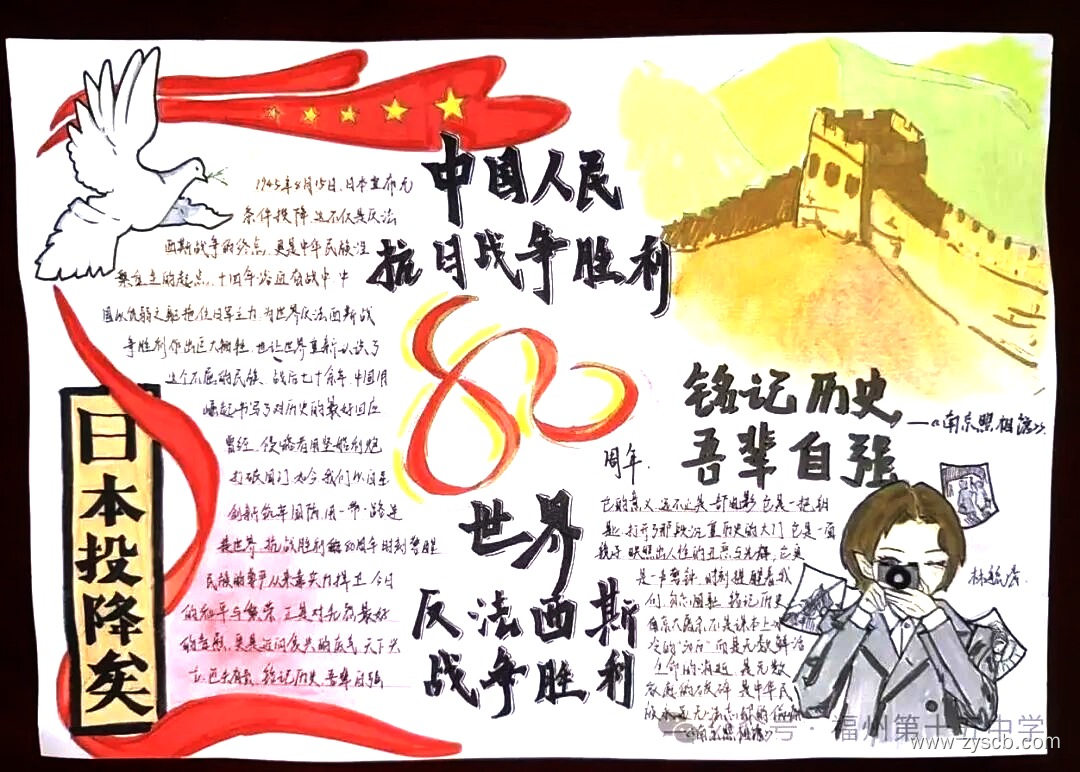 中国人民
抗日战争胜利
80
周年.
世界
反法西斯
战争胜利
日本投降矣
1945年8月15日、日本宣布无
条件投降 这不仅是反法
西斯战争的终点、更是中华民族
的起点、十四年浴血奋战中 中
国以 弱之躯拖住日军主力 为世界反法西斯战
争胜利作出巨大牺牲 也让世界重新认识了
这个不屈的民族、战后七十余年 中国用
崛起书写了对历史的最好回应
曾经、侵略者用坚船利炮
打破国门 如今 我们以自主
创新筑牢国防 用一带一路
世界 抗战胜利 80周年时刻
民族的尊严从来靠实力捍卫 今日
的和平与繁荣 正是对先烈最好
的告慰
铭记历史 吾辈自强
铭记历史
吾辈自强
—《南京照相馆》
它的意义 远不止是一部电影 它是一把钥
匙 打开了那段沉重历史的大门 它是一面
镜子 映照出人性的丑恶与光辉 它更
是一声警钟 时刻提醒着我
们 勿忘国耻 铭记历史
南京大屠杀 不是课本上冰
冷的 而是无数鲜活
生命的消逝 是无数
家庭的破碎 是中华民
族永远无法忘却的伤痛
《南京照相馆》
林毓秀.
号·福州第十五中学
www.zyscb.com